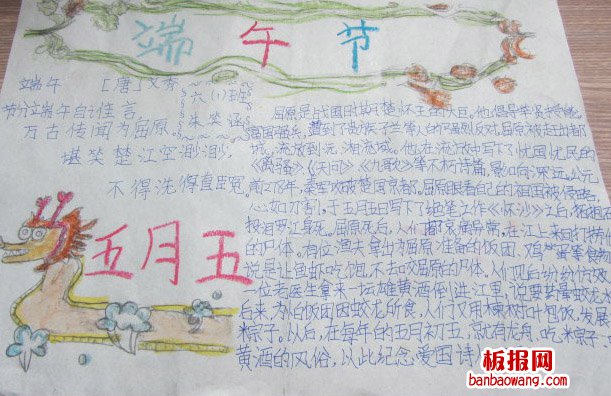 端午节
端午 [唐]文秀
六(1)班
朱笑涵
节分端午自谁言
万古传闻为屈原
堪笑楚江空渺渺,
不得洗得直臣冤
五月五
屈原是战国时期楚怀王的大臣。他倡导举贤授能,
富国强兵,遭到了贵族子兰等人的强烈反对,屈原被赶出都
城,流放到沅、湘流域。他在流放中写下了忧国忧民的
《离骚》《天问》《九歌》等不朽诗篇,影响深远。公元
前278年,秦军攻破楚国京都。屈原眼看自己的祖国被侵略,
心如刀割,于五月五日写下了绝笔之作《怀沙》之后,抱石
投汨罗江身死。屈原死后,人们哀异常,在江上来回打捞他
的尸体。有位渔夫拿出为屈原准备的饭团、鸡蛋等食物
说是让鱼虾吃饱,不去咬屈原的尸体。人们见后纷纷仿效
一位老医生拿来一坛雄黄酒倒进江里,说要药晕蛟龙
后来,为怕饭团因蛟龙所食,人们又用楝树叶包饭,发展
粽子。以后,在每年的五月初五,就有龙舟、吃粽子、
黄酒的风俗,以此纪念爱国诗
板报网
banbaowang.com